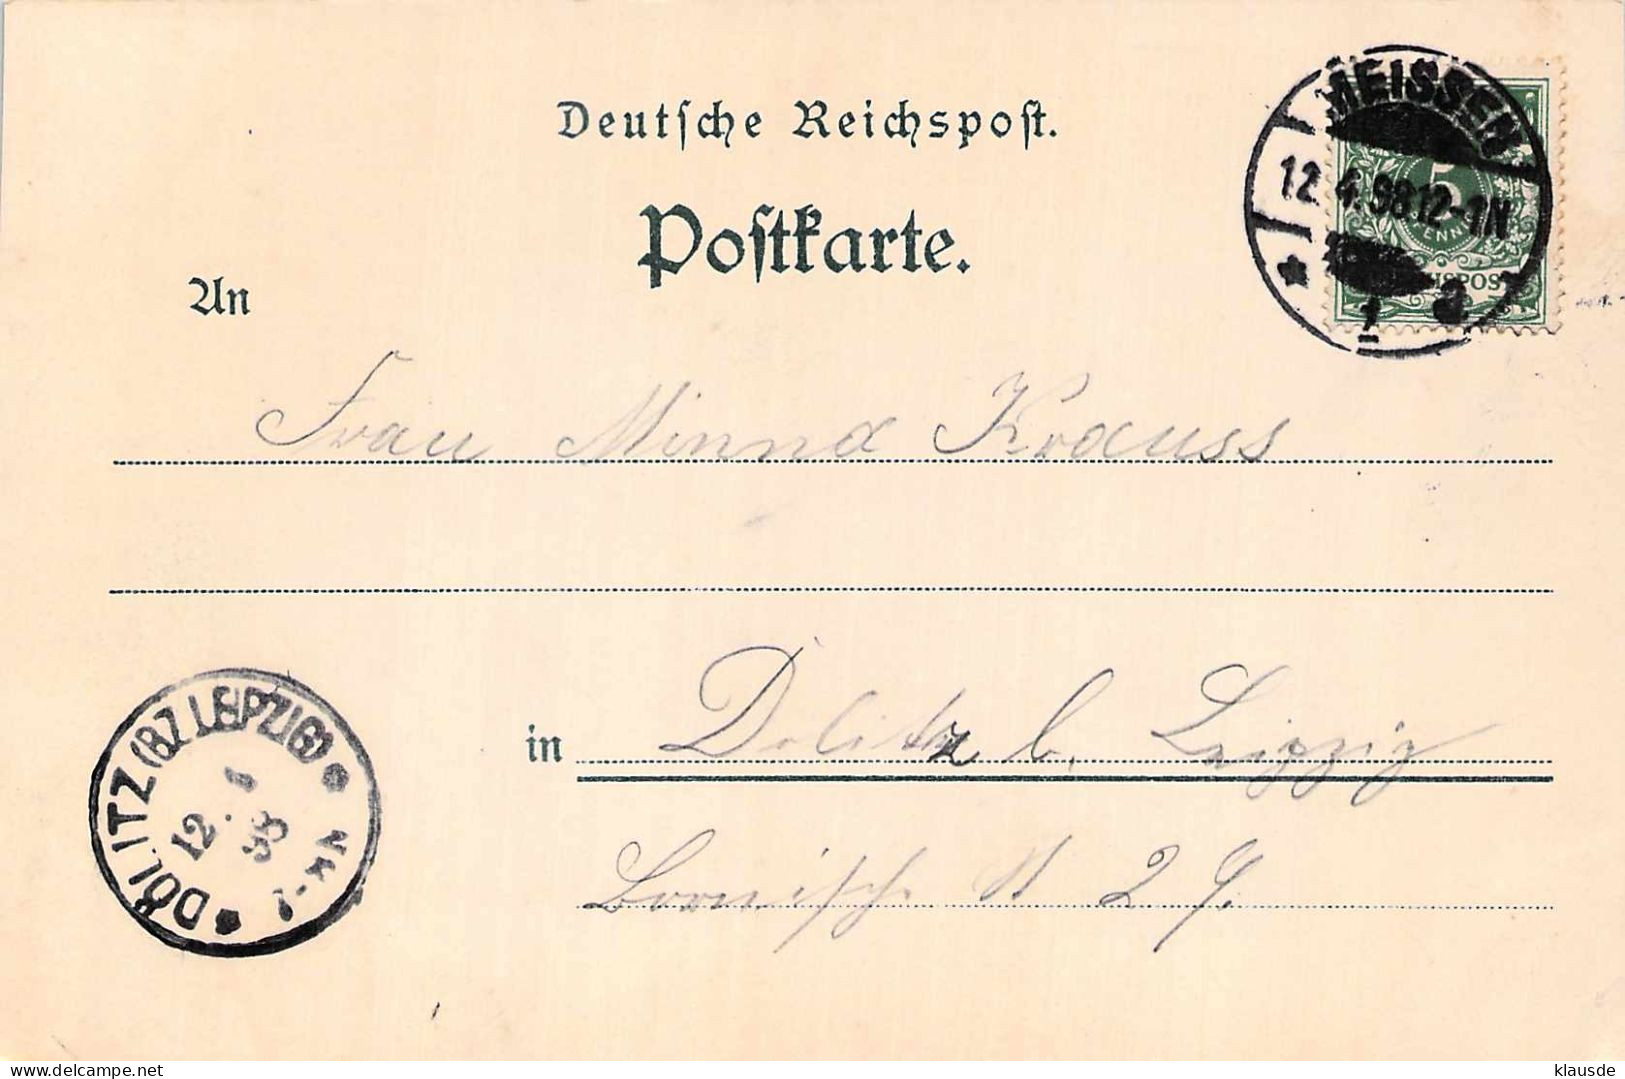 Deutsche Reichspost.
Postkarte.
An
MEISSEN
12.4.98.12-1N
* 1 a
5
PFENNIG
REICHSPOST
Frau Minna Krauss
in Dölitz b. Leipzig
Bornische St 29.
* DÖLITZ (BZ LEIPZIG) *
12. 4
98
7-8N
de.delcampe.net
klausde